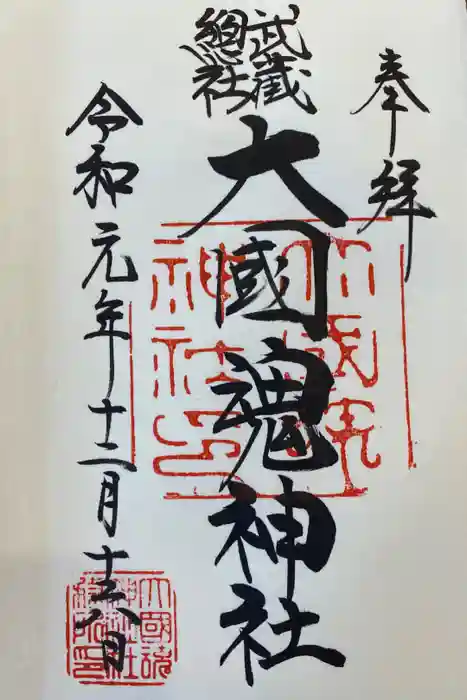 奉拝
武蔵
總社
大國魂神社
令和元年十二月十六日